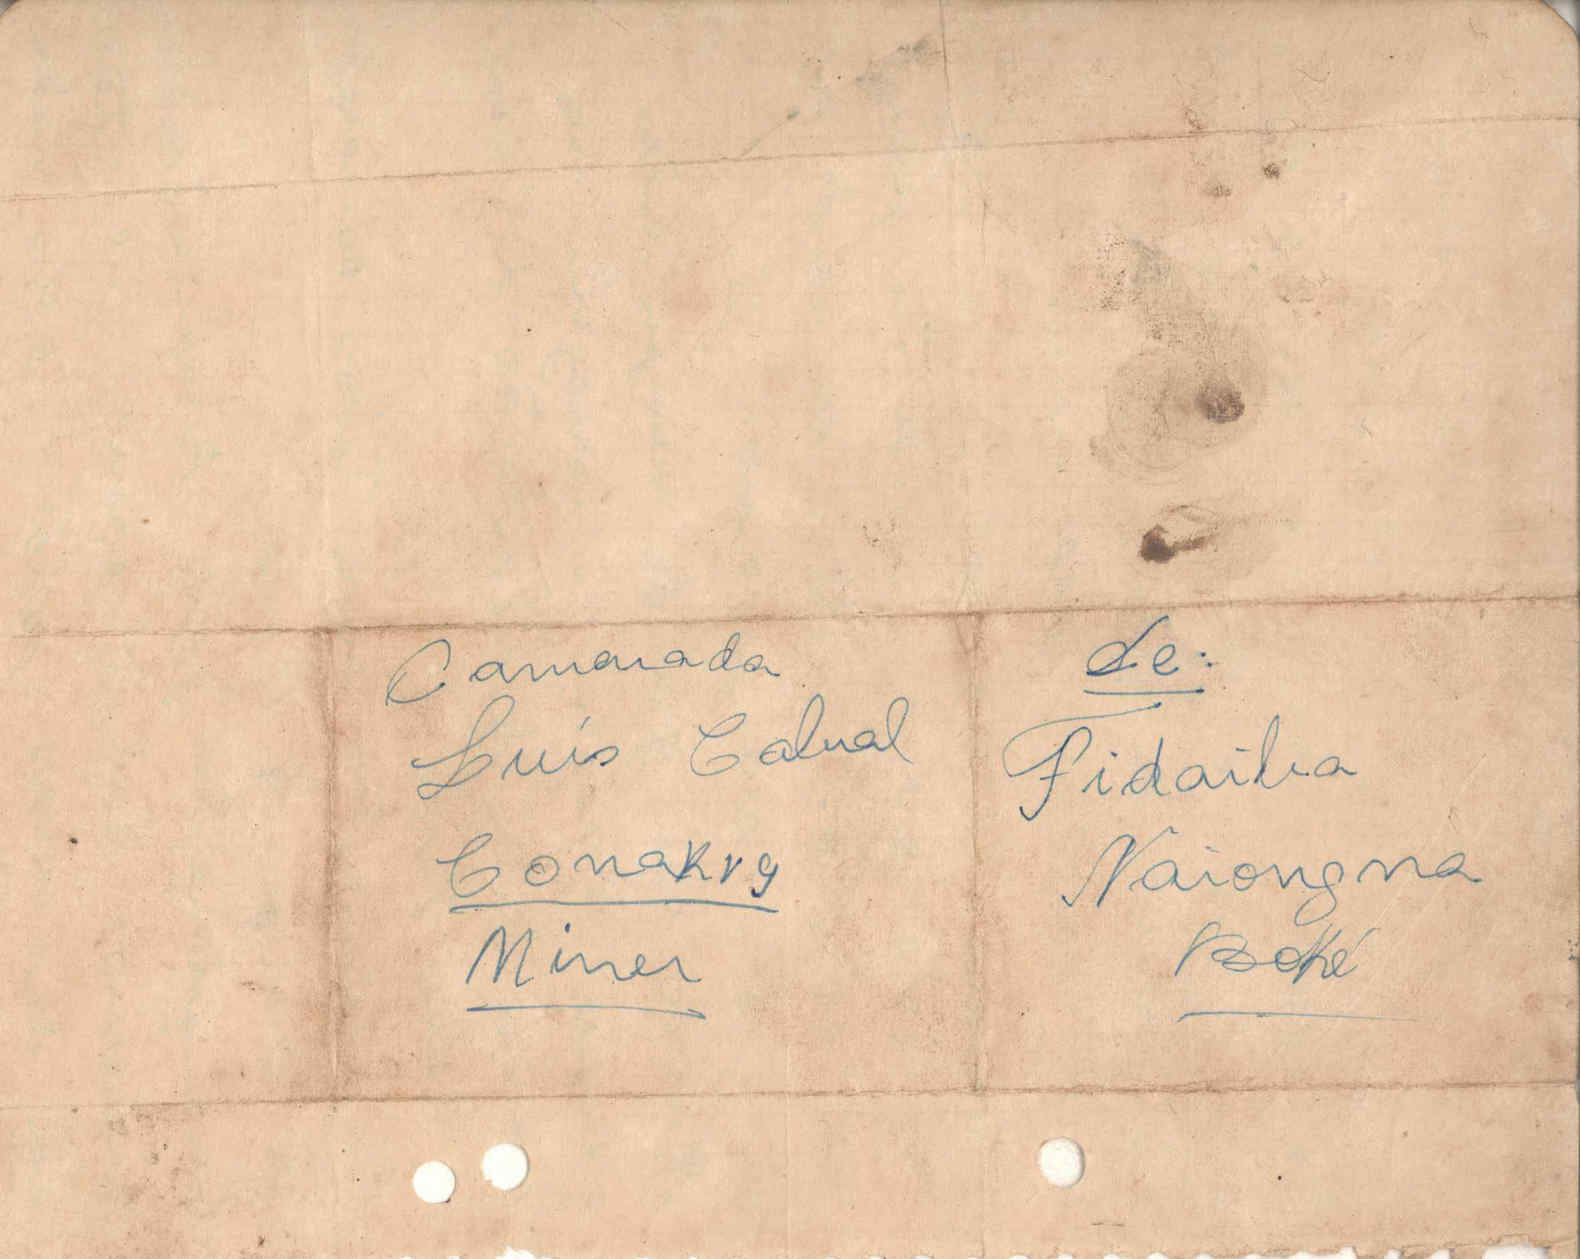 Camarada
Luís Cabral
Conakry
Miner
de:
Fidaiba
Naiongna
Boké